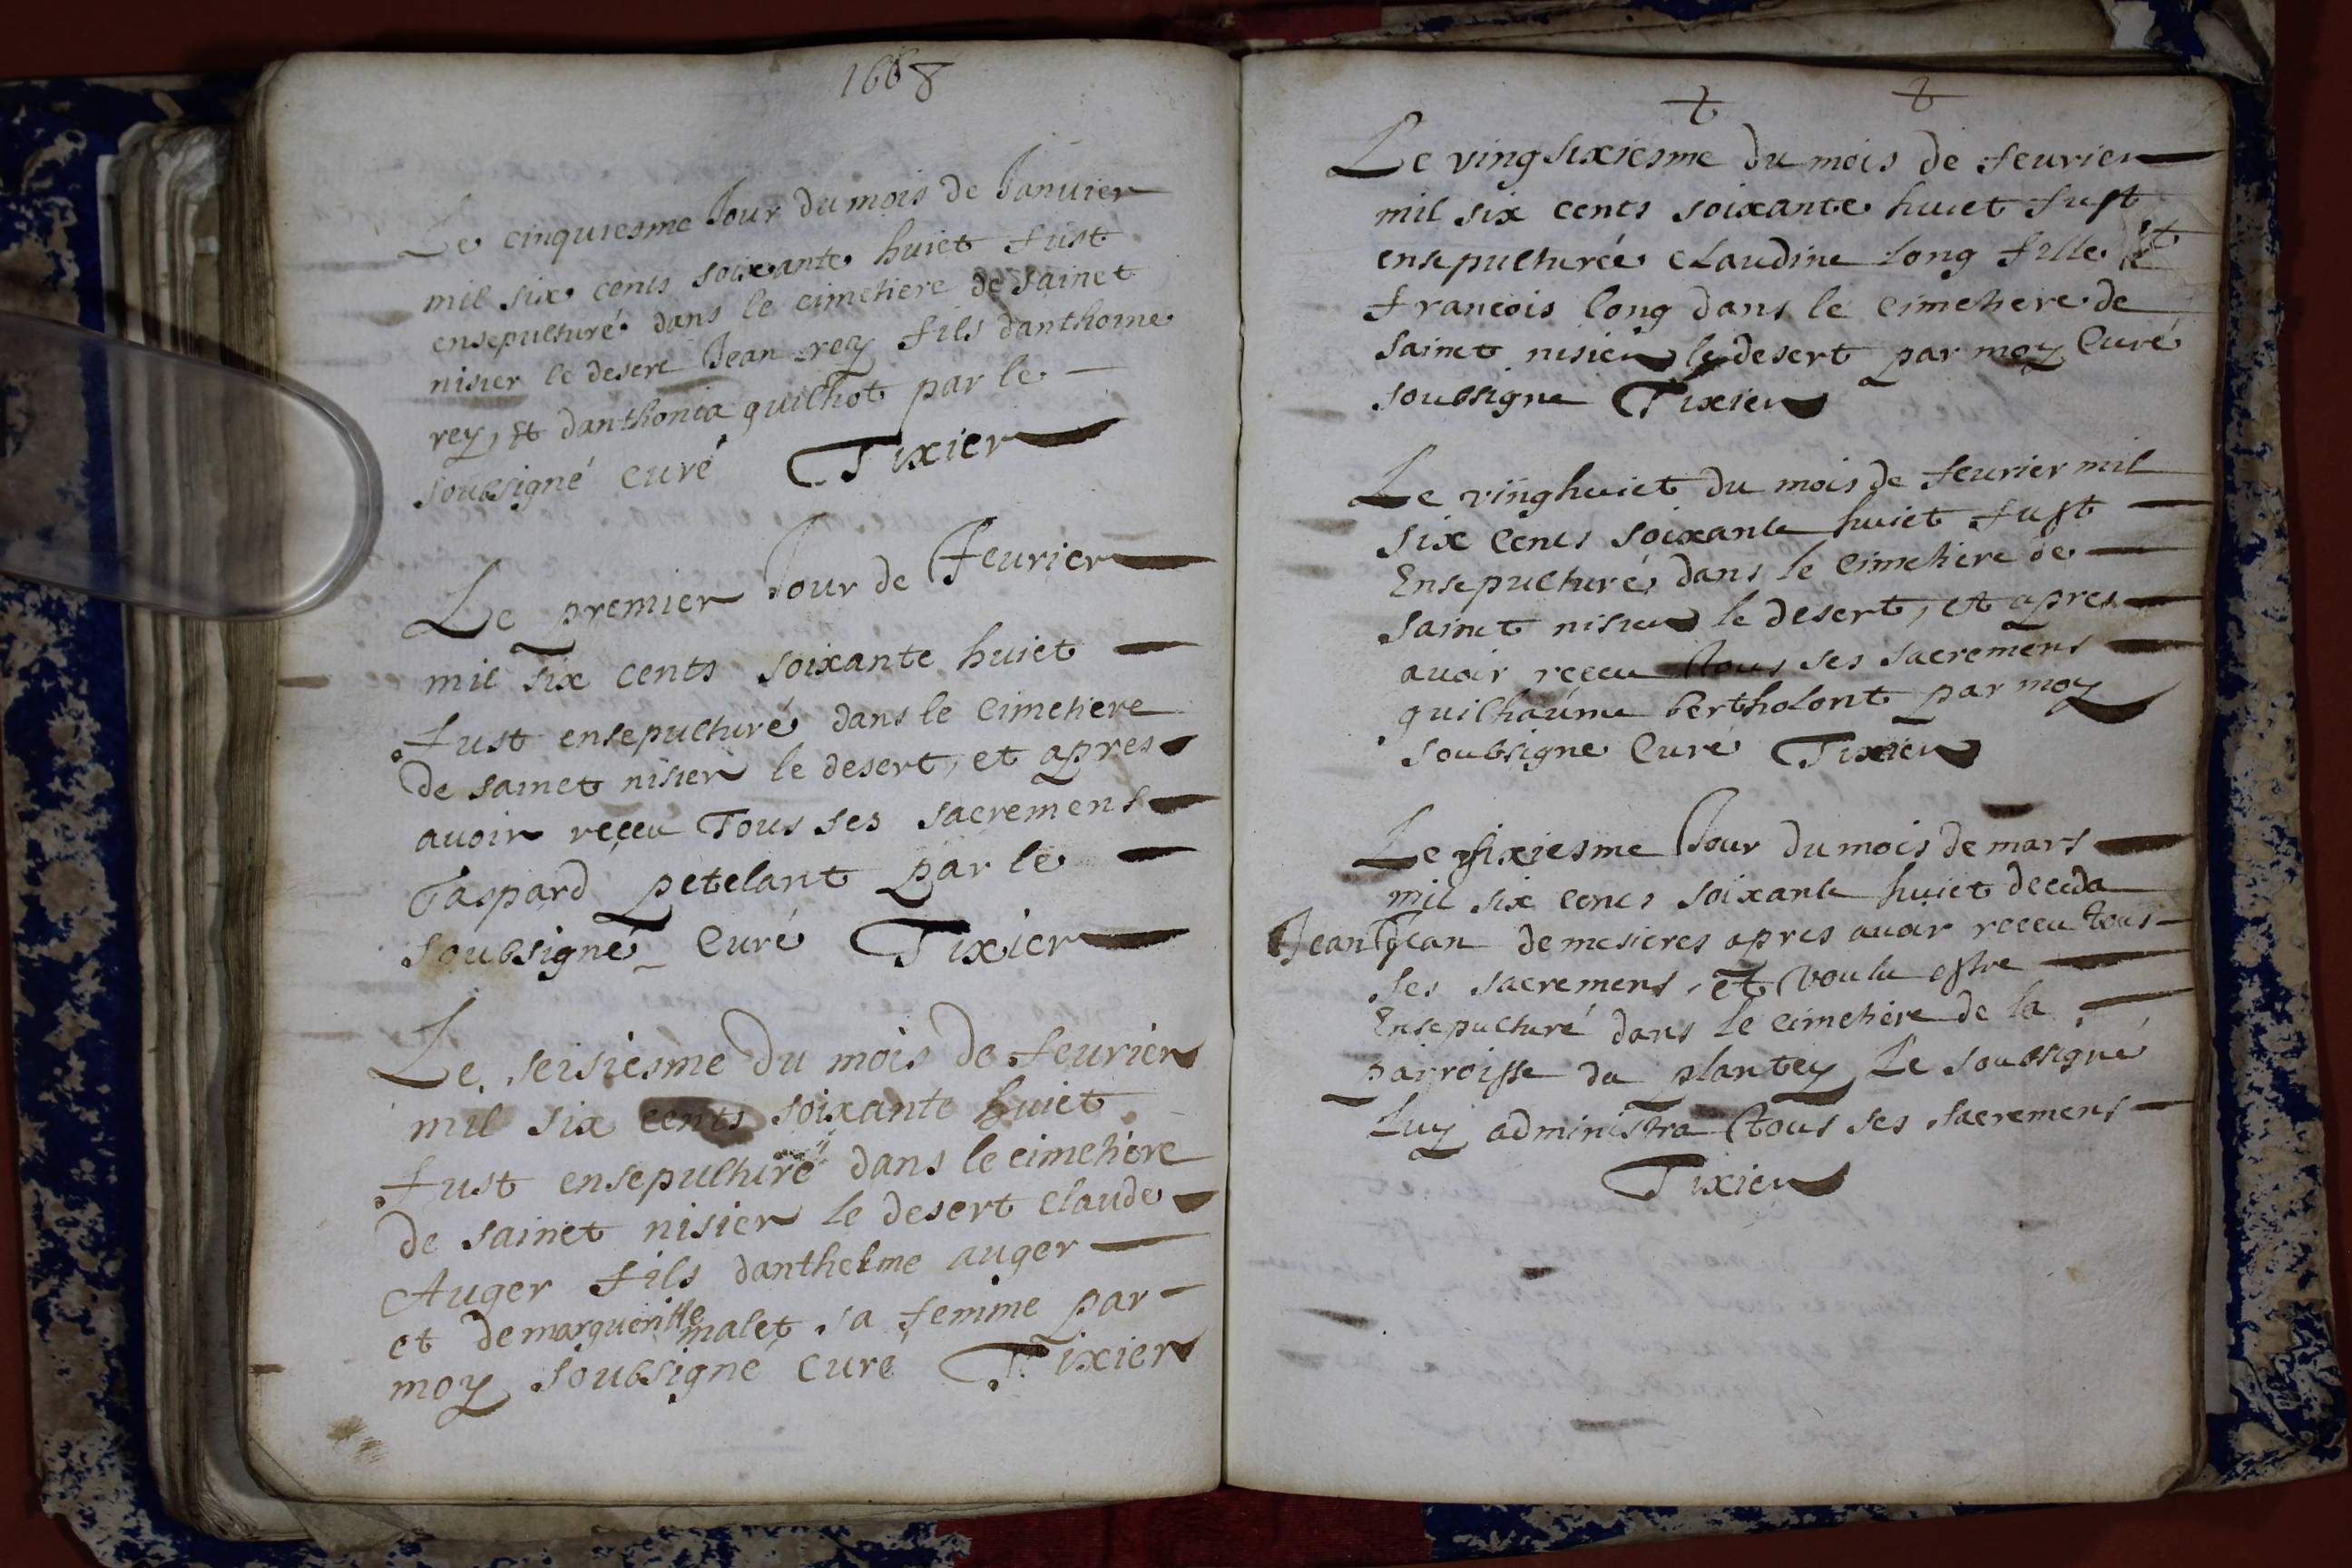 1668
Le cinquiesme Jour du mois de Januier
mil six cents soixante huict fust
ensepulturé dans le cimetiere de sainct
nisier le desert Jean rey fils danthoine
rey, et danthonia guilhot par le
soubsigné curé Tixier
Le premier Jour de Feurier
mil six cents soixante huict
fust ensepulturé dans le Cimetiere
de sainct nisier le desert, et apres
auoir receu Tous ses sacremens
Gaspard petelant par le
soubsigné Curé Tixier
Le seisiesme du mois de feurier
mil six cents soixante huict
fust ensepulturé dans le cimetiere
de sainct nisier le desert claude
Auger fils danthelme auger
et de margueritte malet sa femme par
moy soubsigné curé Tixier
Le vingsixiesme du mois de feurier
mil six cents soixante huict fust
ensepulturée claudine long fille
francois long dans le cimetiere de
sainct nisier le desert par moy Curé
soubsigne Tixier
Le vinghuict du mois de feurier mil
six cents soixante huict fust
Ensepulturé dans le cimetiere de
sainct nisier le desert, et apres
auoir receu tous ses sacremens
guilhaume bertholont par moy
soubsigne Curé Tixier
Le sixiesme Jour du mois de mars
mil six cents soixante huict deceda
Jean Jean demesieres apres auoir receu tous
ses sacremens, et voulu estre
Ensepulturé dans le cimetiere de la
parroisse du plantey Le soubsigné
Luy administra tous ses sacremens
Tixier